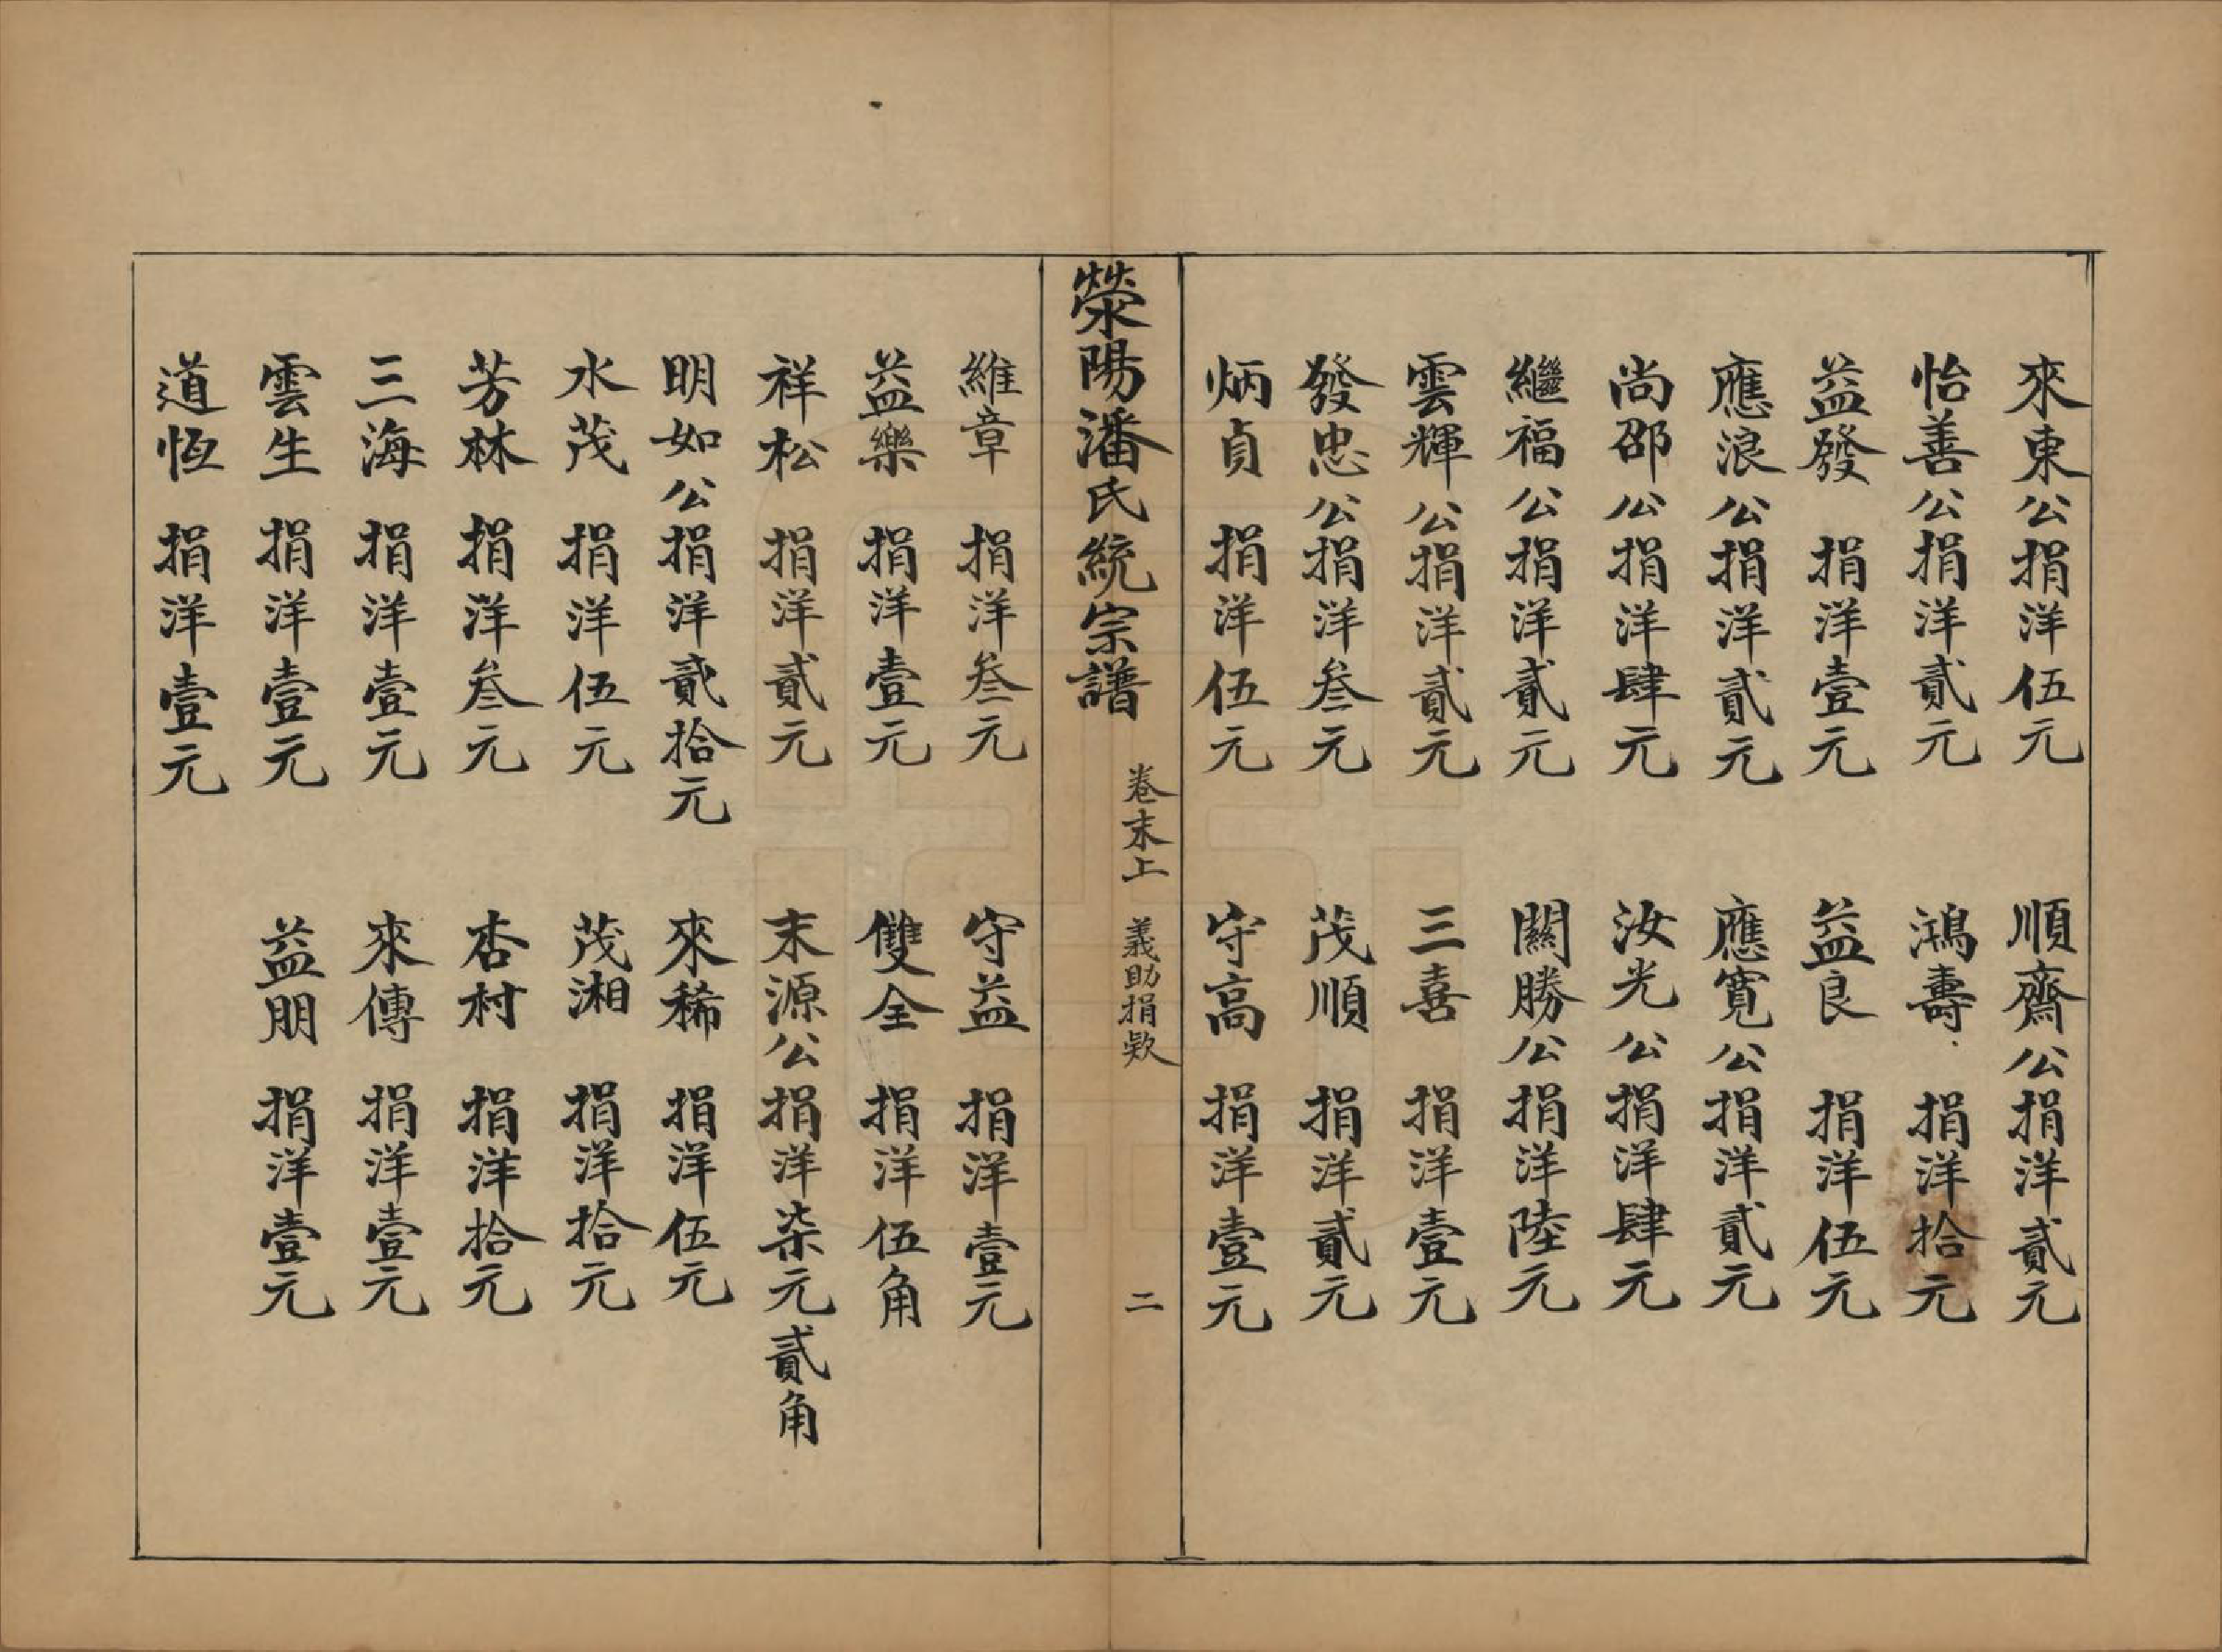 來東公捐洋伍元　順齋公捐洋貳元
怡善公捐洋貳元　鴻壽捐洋拾元
益發捐洋壹元　益良捐洋伍元
應浪公捐洋貳元　應寬公捐洋貳元
尚邵公捐洋肆元　汝光公捐洋肆元
繼福公捐洋貳元　關勝公捐洋陸元
雲輝公捐洋貳元　三喜捐洋壹元
發忠公捐洋叁元　茂順捐洋貳元
炳貞捐洋伍元　守高捐洋壹元
滎陽潘氏統宗譜　卷末上　義助捐欵　二
維章捐洋叁元　守益捐洋壹元
益樂捐洋壹元　雙全捐洋伍角
祥松捐洋貳元　末源公捐洋柒元貳角
明如公捐洋貳拾元　來稀捐洋伍元
水茂捐洋伍元　茂湘捐洋拾元
芳林捐洋叁元　杏村捐洋拾元
三海捐洋壹元　來傳捐洋壹元
雲生捐洋壹元　益朋捐洋壹元
道恆捐洋壹元